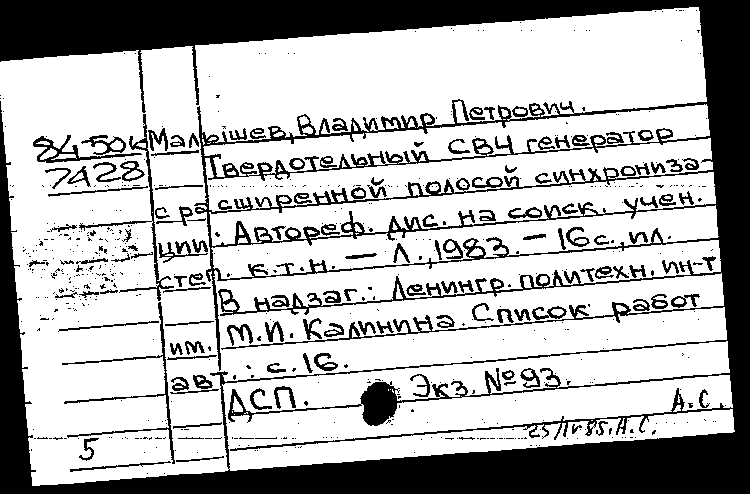 84-50к Малышев, Владимир Петрович.
7428 Твердотельный СВЧ генератор
с расширенной полосой синхрониза-
ции : Автореф. дис. на соиск. учен.
степ. к.т.н. — Л., 1983. — 16 с., ил.
В надзаг.: Ленингр. политехн. ин-т
им. М.И. Калинина. Список работ
авт.: с. 16.
ДСП. Экз. №93.
А.С.
25/IV 85. А.С.
5